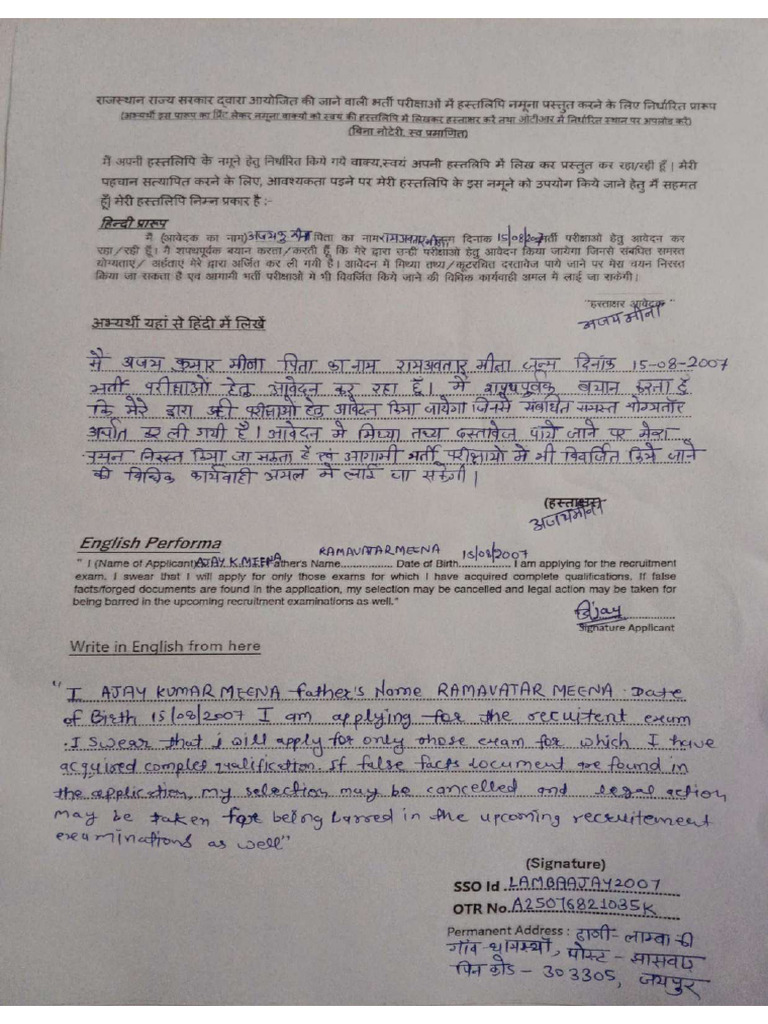 राजस्थान राज्य सरकार द्वारा आयोजित की जाने वाली भर्ती परीक्षाओं में हस्तलिपि नमूना प्रस्तुत करने के लिए निर्धारित प्रारूप
(अभ्यर्थी इस प्रारूप का प्रिंट लेकर नमूना वाक्यों को स्वयं की हस्तलिपि में लिखकर हस्ताक्षर करें तथा ओटीआर में निर्धारित स्थान पर अपलोड करें)
(बिना नोटेरी, स्व प्रमाणित)
मैं अपनी हस्तलिपि के नमूने हेतु निर्धारित किये गये वाक्य,स्वयं अपनी हस्तलिपि में लिख कर प्रस्तुत कर रहा/रही हूँ। मेरी
पहचान सत्यापित करने के लिए, आवश्यकता पड़ने पर मेरी हस्तलिपि के इस नमूने को उपयोग किये जाने हेतु मैं सहमत
हूँ। मेरी हस्तलिपि निम्न प्रकार है :-
हिन्दी प्रारूप
मैं (आवेदक का नाम) अजय कु मीना पिता का नाम रामअवतार मीना दिनांक 15/08/2007 भर्ती परीक्षाओं हेतु आवेदन कर
रहा/रही हूँ। मैं शपथपूर्वक बयान करता/करती हूँ कि मेरे द्वारा उन्हीं परीक्षाओं हेतु आवेदन किया जायेगा जिनसे संबंधित समस्त
योग्यताएं/ अर्हताएं मेरे द्वारा अर्जित कर ली गयी है। आवेदन में मिथ्या तथ्य/कूटरचित दस्तावेज पाये जाने पर मेरा चयन निरस्त
किया जा सकता है एवं आगामी भर्ती परीक्षाओं में भी विवर्जित किये जाने की विधिक कार्यवाही अमल में लाई जा सकेगी।
"हस्ताक्षर आवेदक"
अजय मीना
अभ्यर्थी यहां से हिंदी में लिखें
मैं अजय कुमार मीना पिता का नाम रामअवतार मीना जन्म दिनांक 15-08-2007
भर्ती परीक्षाओ हेतु आवेदन कर रहा हूँ। में शपथपूर्वक बयान करना हुं
कि मेरे द्वारा उन्ही परीक्षाओ हेतु आवेदन किया जायेगा जिनसे संबंधित समस्त योग्यताऐं
अर्चात कर ली गयी है। आवेदन मे मिथ्या तथ्य दस्तावेज पाये जाने पर मेरा
चयन निरस्त किया जा सकता है एवं आगामी भर्ती परीक्षाओ मे भी विवर्जित किये जाने
की विधिक कार्यवाही अमल मे लाई जा सकेगी।
(हस्ताक्षर)
अजय मीना
English Performa
" I (Name of Applicant) AJAY K.MEENA Father's Name RAMAVATAR MEENA Date of Birth 15/08/2007 I am applying for the recruitment
exam. I swear that I will apply for only those exams for which I have acquired complete qualifications. If false
facts/forged documents are found in the application, my selection may be cancelled and legal action may be taken for
being barred in the upcoming recruitment examinations as well."
Ajay
Signature Applicant
Write in English from here
"I AJAY KUMAR MEENA father's Name RAMAVATAR MEENA Date
of Birth 15/08/2007 I am applying for the recuitent exam
. I swear that i will apply for only those exam for which I have
acquired complet qualification. If false facts document are found in
the application, my selection may be cancelled and legal action
may be taken for being barred in the upcoming recruitement
examinations as well"
(Signature)
SSO Id . LAMBAAJAY2007
OTR No. A25076821035K
Permanent Address : ढाणी- लाम्बा की
गांव पोस्ट -
पिन कोड - 303305, जयपुर